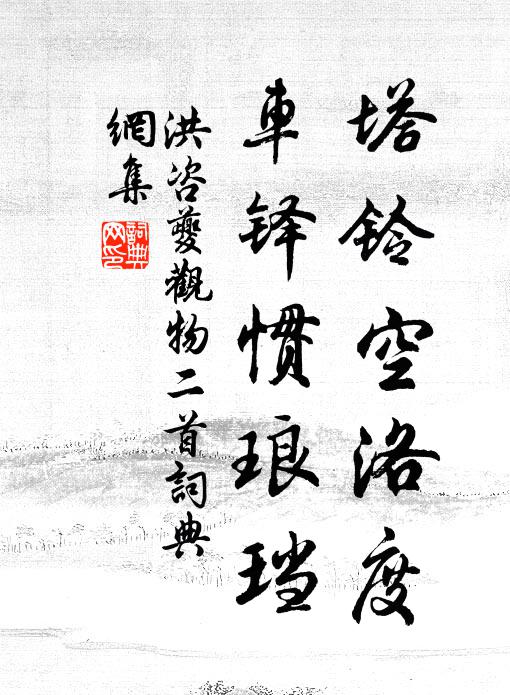 塔铃空洛度
車铎惯琅珰
洪咨夔觀物二首詞典
網集
詞典網印